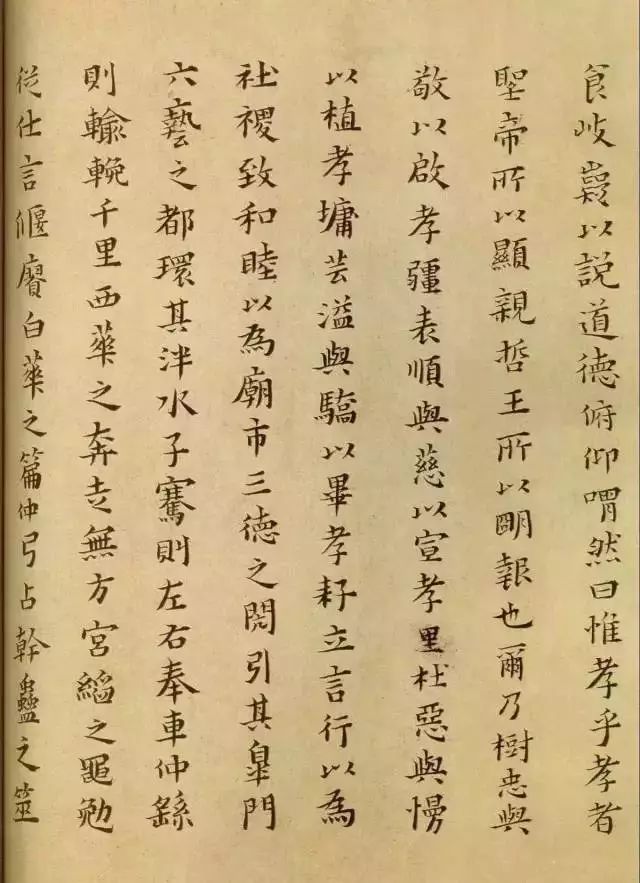 食岐嶷以説道德俯仰喟然曰惟孝乎孝者
聖帝所以顯親哲王所以明報也爾乃樹忠與
敬以啟孝疆表順與慈以宣孝里杜惡與慢
以植孝墉芸溢與驕以畢孝耔立言行以為
社稷致和睦以為廟市三德之閎引其皋門
六藝之都環其泮水子騫則左右奉車仲繇
則輸輓千里西華之奔走無方宮縚之黽勉
從仕言偃賡白華之篇仲弓占幹蠱之筮